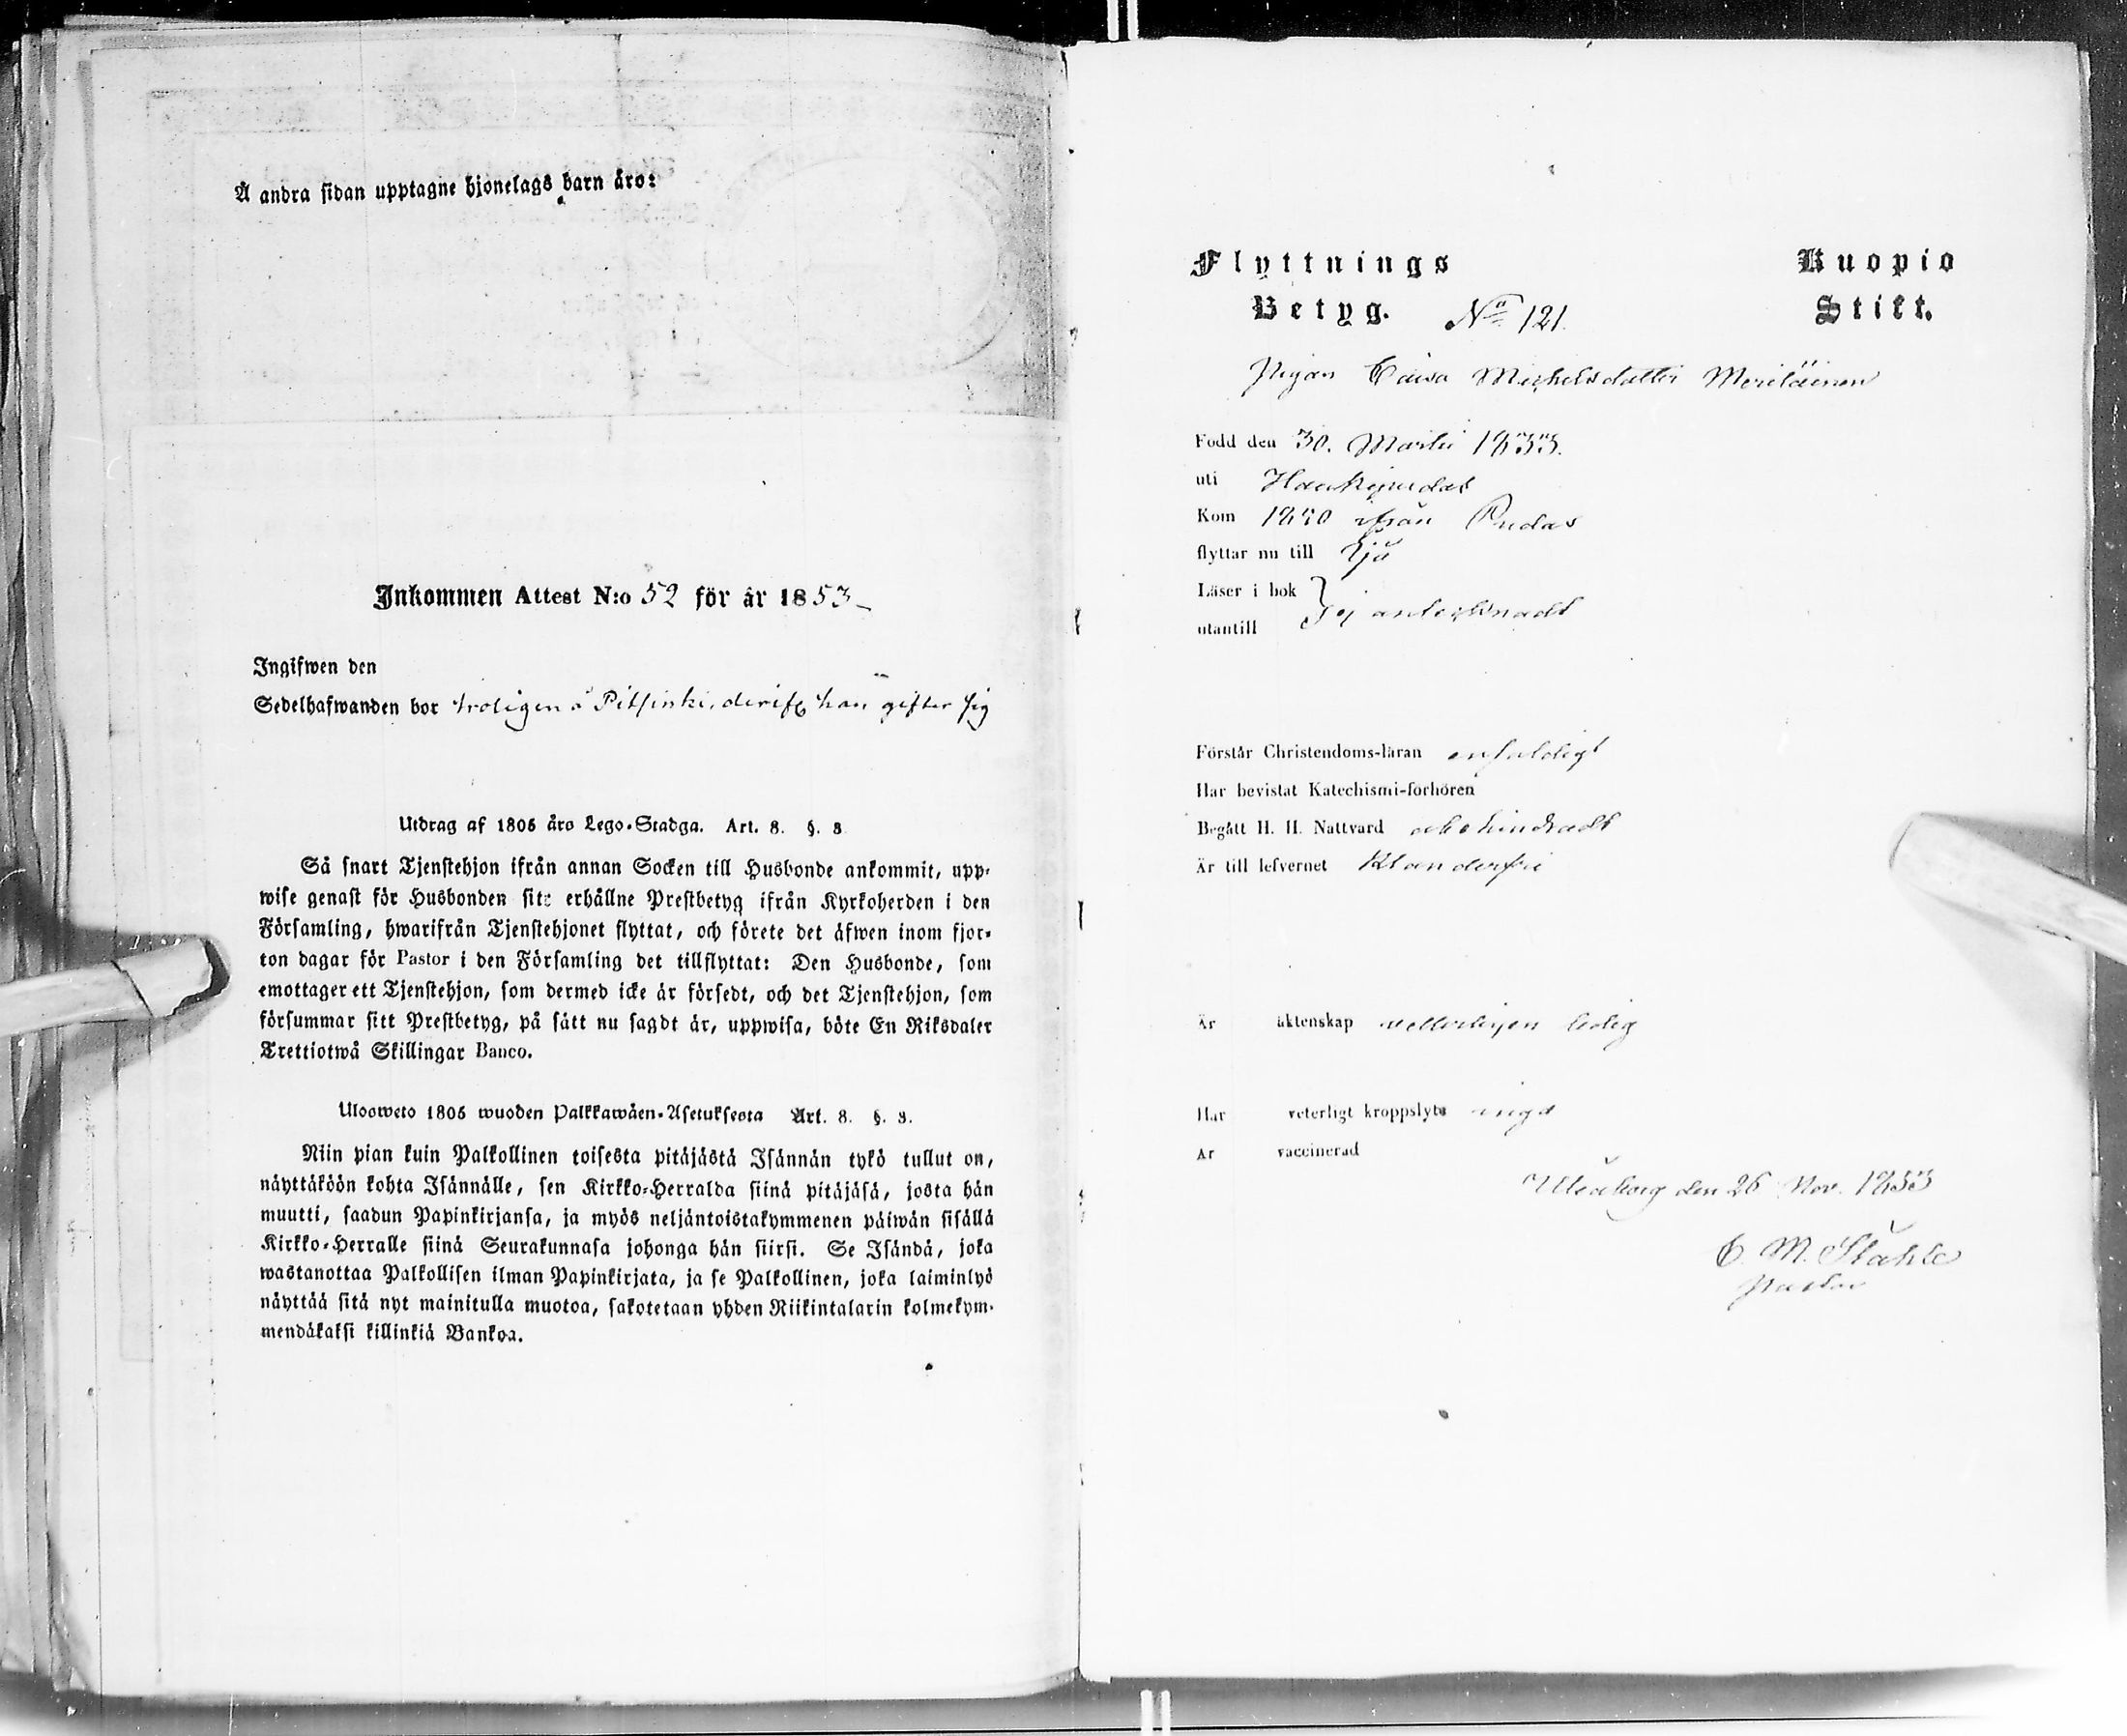 Å andra sidan upptagne hjonelags barn äro:
Inkommen Attest N:o 52 för år 1853
Ingifwen den
Sedelhafwanden bor troligen å Pitsinki, han gifter sig
Utdrag af 1805 års Lego-Stadga. Art. 8. §. 3
Så snart Tjenstehjon ifrån annan Socken till Husbonde ankommit, upp-
wise genast för Husbonden sitt erhållne Prestbetyg ifrån Kyrkoherden i den
Församling, hwarifrån Tjenstehjonet flyttat, och förete det äfwen inom fjor-
ton dagar för Pastor i den Församling det tillflyttat: Den Husbonde, som
emottager ett Tjenstehjon, som dermed icke är försedt, och det Tjenstehjon, som
försummar sitt Prestbetyg, på sätt nu sagdt är, uppwisa, böte En Riksdaler
Trettiotwå Skillingar Banco.
Ulosweto 1805 wuoden Palkkawäen-Asetuksesta Art. 8. §. 3.
Niin pian kuin Palkollinen toisesta pitäjästä Isännän tykö tullut on,
näyttäköön kohta Isännälle, sen Kirkko-Herralda siinä pitäjäsä, josta hän
muutti, saadun Papinkirjansa, ja myös neljäntoistakymmenen päiwän sisällä
Kirkko-Herralle siinä Seurakunnasa johonga hän siirsi. Se Isändä, joka
wastanottaa Palkollisen ilman Papinkirjata, ja se Palkollinen, joka laiminlyö
näyttää sitä nyt mainitulla muotoa, sakotetaan yhden Riikintalarin kolmekym-
mendäkaksi killinkiä Bankoa.
Flyttnings Kuopio
Betyg. No 121. Stift.
Pigan Caisa Michelsdotter Meriläinen
Född den 30. Martii 1833.
uti Haukipudas
Kom 1850 ifrån Pudas
flyttar nu till Ijo
Läser i bok }
utantill Ej antecknadt
Förstår Christendoms-läran enfaldigt
Har bevistat Katechismi-förhören
Begått H. H. Nattvard obehindradt
Är till lefvernet Klanderfri
Är äktenskap vetterligen ledig
Har veterligt kroppslyte inga
Är vaccinerad
Uleåborg den 26 Nov. 1853
C. M. Ståhle
Pastor